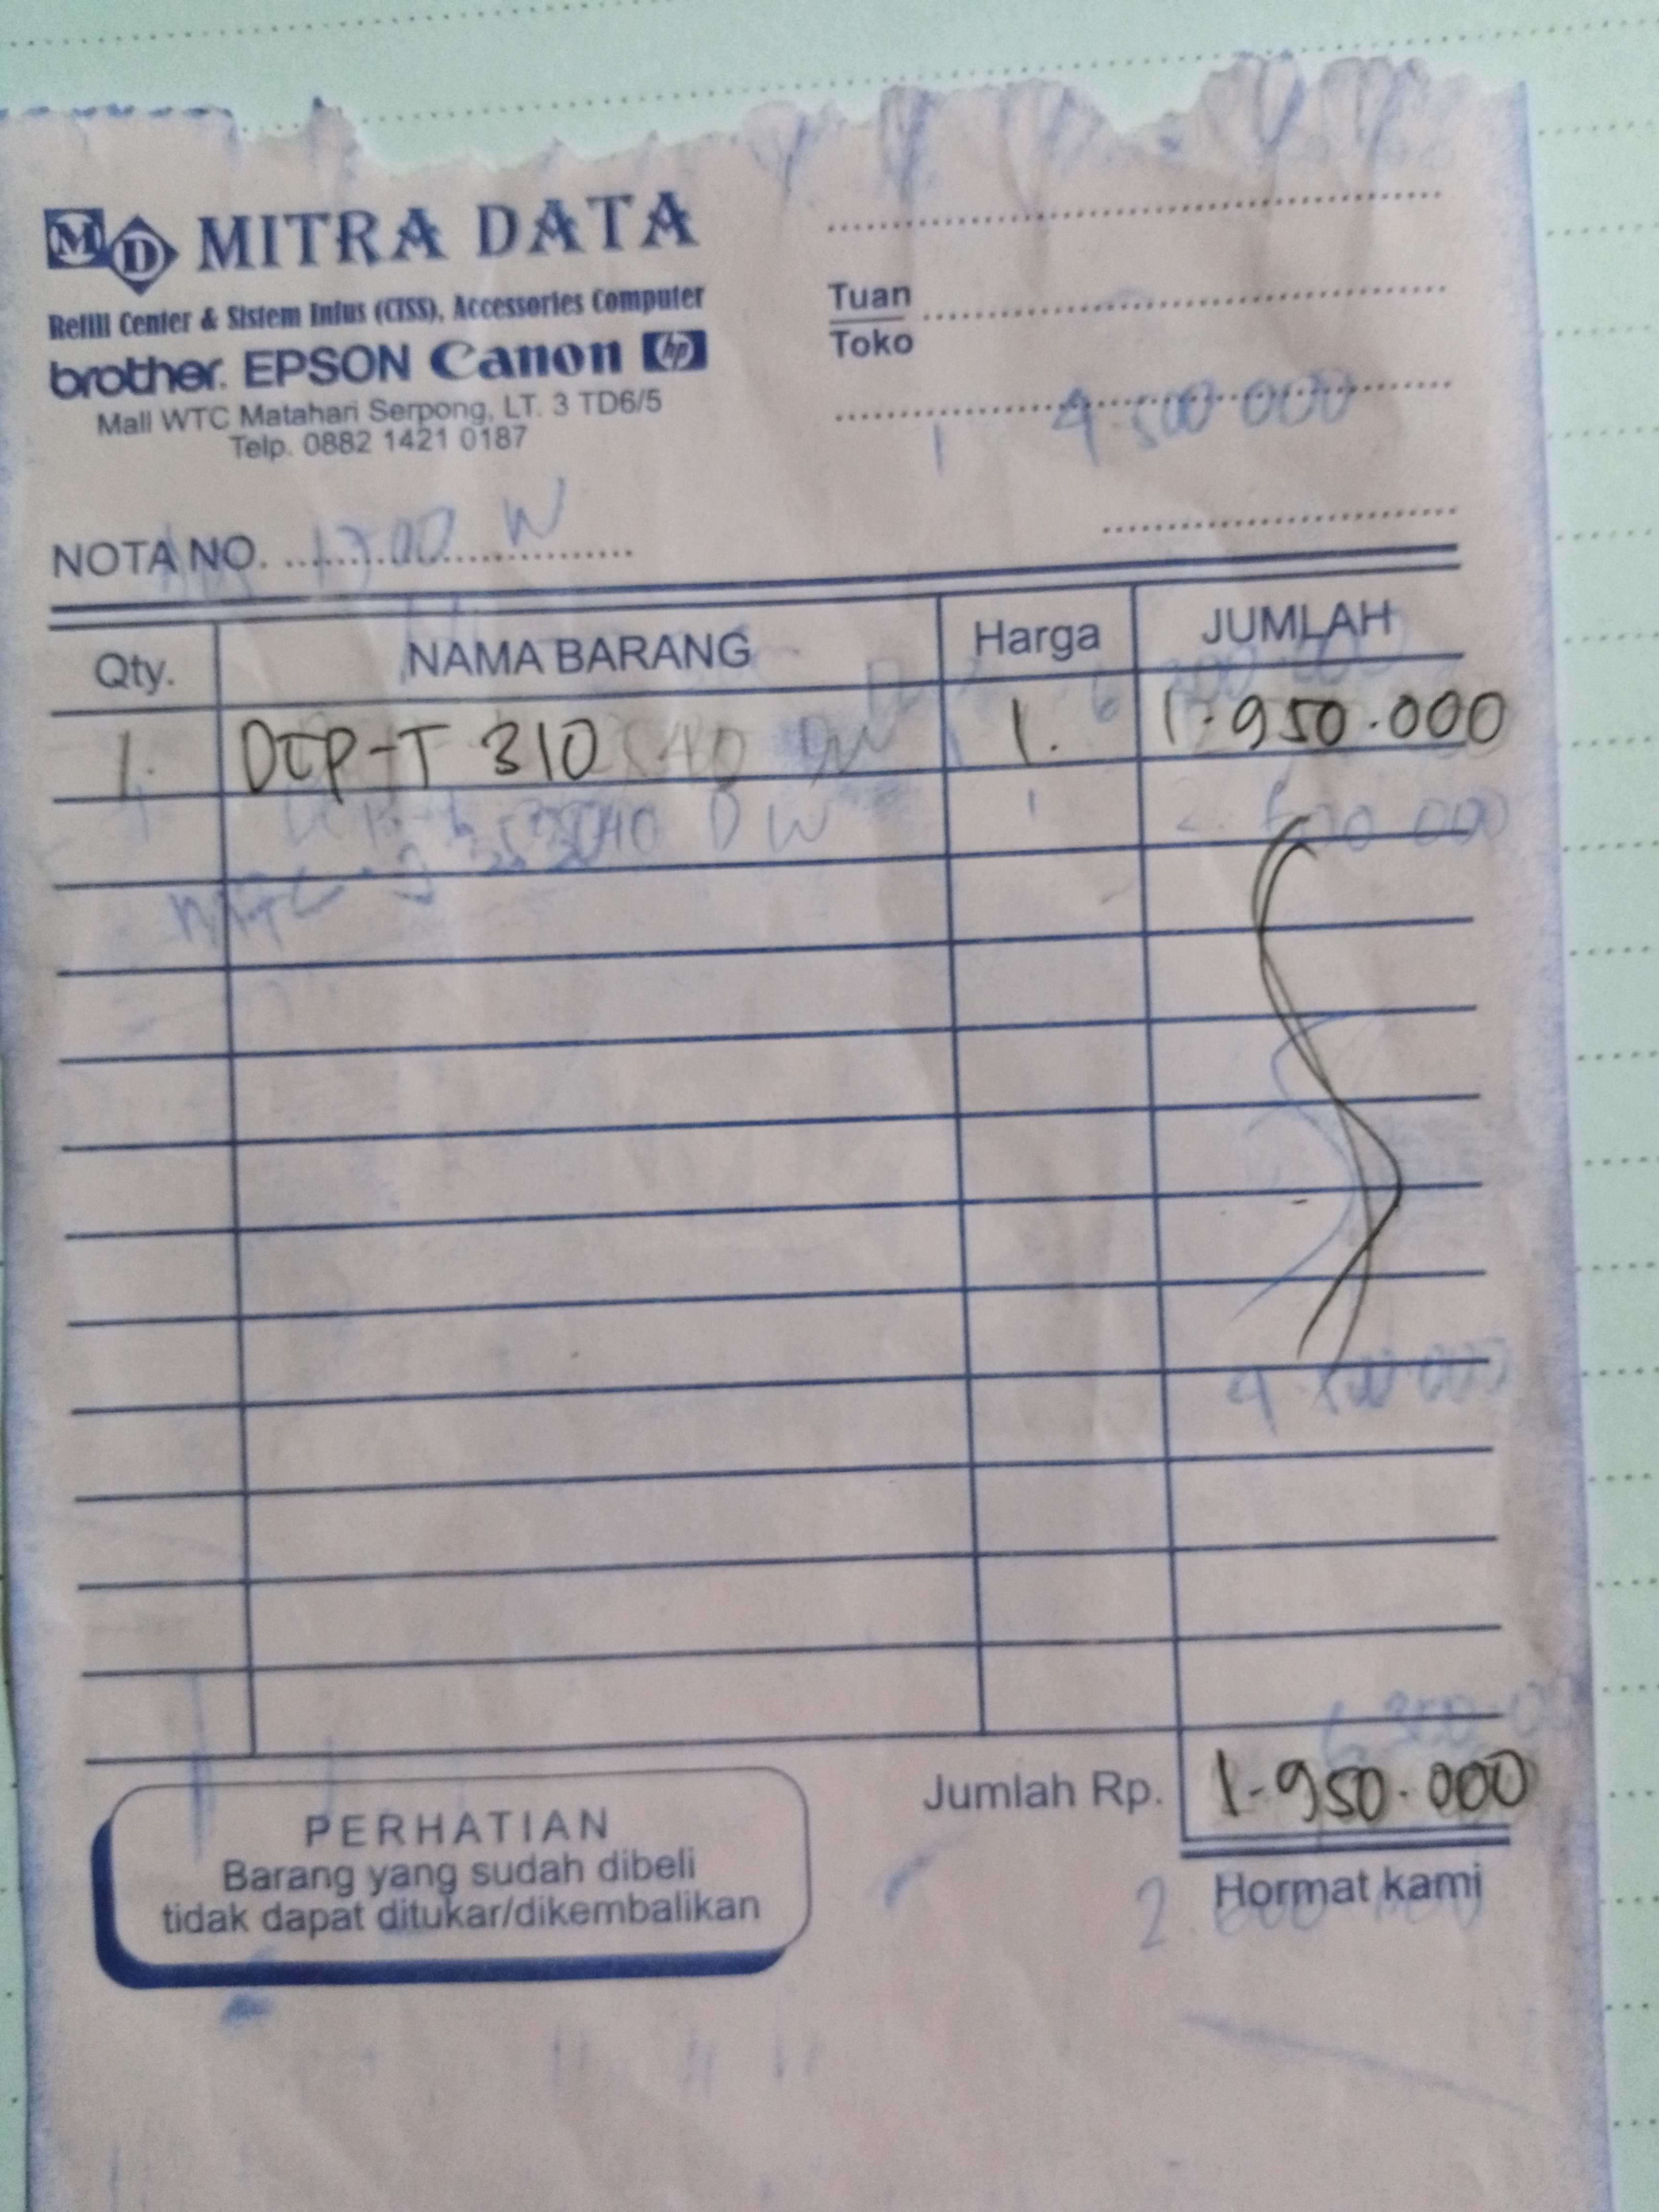 MD MITRA DATA
Refill Center & Sistem Infus (CISS), Accessories Computer
brother. EPSON Canon hp
Mall WTC Matahari Serpong, LT. 3 TD6/5
Telp. 0882 1421 0187
Tuan
Toko
1 4.500 000
NOTA NO.
Qty. NAMA BARANG Harga JUMLAH
1. DCP-T 310 1. 1.950.000
Jumlah Rp. 1.950.000
PERHATIAN
Barang yang sudah dibeli
tidak dapat ditukar/dikembalikan
Hormat kami